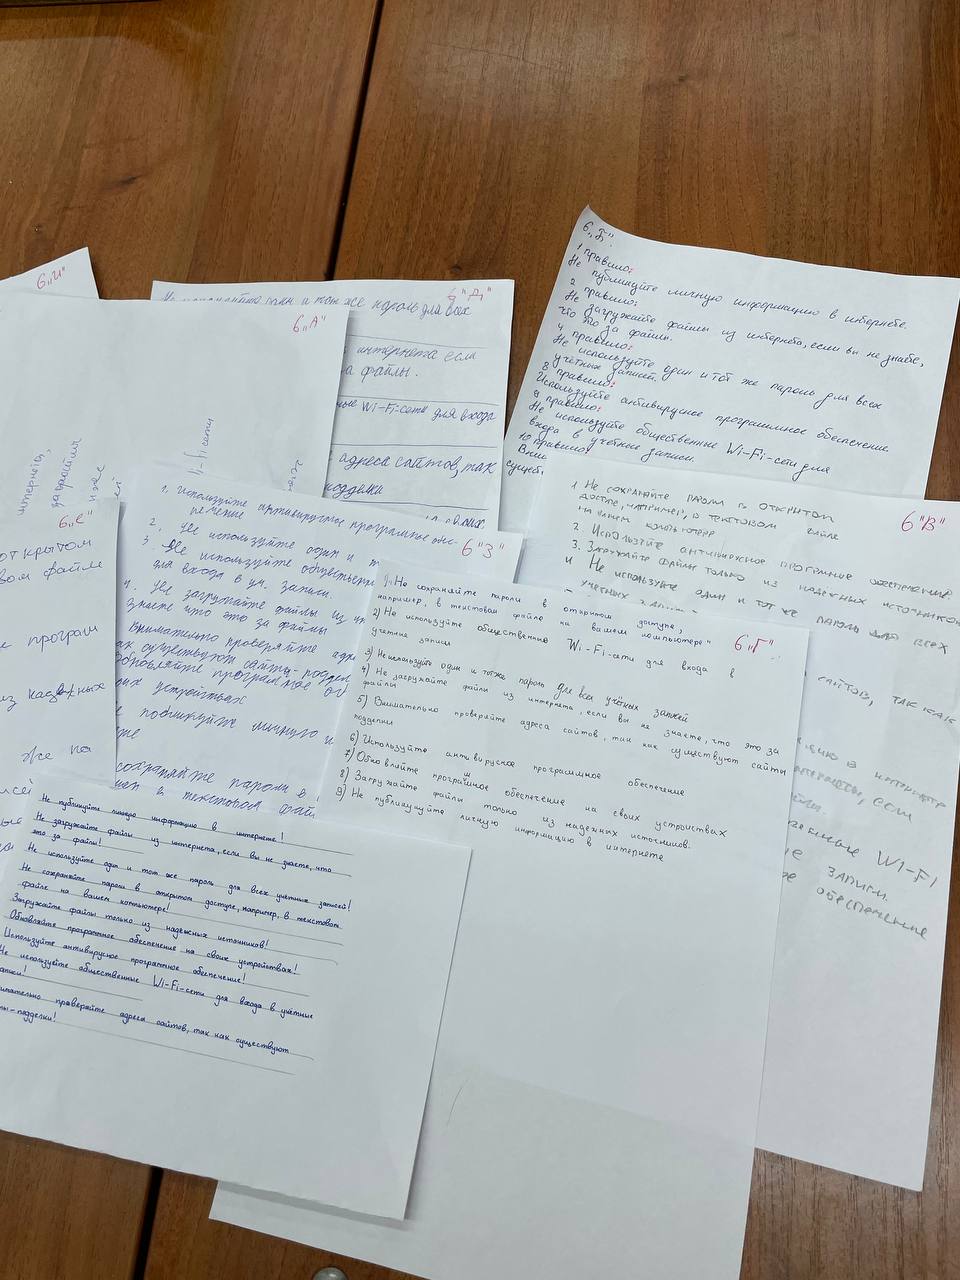 6 „И"
6 „А"
интернета,
Wi-Fi сети
6 "Д"
один и тот же пароль для всех
интернета если
файлы.
Wi-Fi-сети для входа
адреса сайтов, так
подделки
6 „Б".
1 правило:
Не публикуйте личную информацию в интернете.
2 правило:
Не загружайте файлы из интернета, если вы не знаете,
что это за файлы.
4 правило:
Не используйте один и тот же пароль для всех
учётных записей.
8 правило:
Используйте антивирусное программное обеспечение
9 правило:
Не используйте общественные Wi-Fi-сети для
входа в учётные записи.
10 правило:
6 "В"
1 Не сохраняйте пароли в открытом
доступе, например, в текстовом файле
на вашем компьютере
2. Используйте антивирусное програмное обеспечение
3. Загружайте файлы только из надежных источников
4 Не используйте один и тот же пароль для всех
учетных
сайтов, так как
в интернете
если
WI-FI
записи.
обеспечение
6 „Е"
открытом
файле
програм
из надежных
же на
6 "З"
1. Используйте антивирусное програмное обес-
печение
2. Не используйте один и
3. Не используйте обществен
для входа в уч. записи.
4. Не загружайте файлы из
знаете что это за файлы
Внимательно проверяйте
как существуют сайты-поддел
Обновляйте програмное
устройствах
публикуйте личную
сохраняйте пароли в
в текстовом
6 "Г"
1) Не сохраняйте пароли в открытом доступе,
например, в текстовом файле на вашем компьютере"
2) Не используйте общественные Wi-Fi-сети для входа в
учетные записи
3) Не используйте один и тотже пароль для всех учётных записей
4) Не загружайте файлы из интернета, если вы не знаете, что это за
файлы
5) Внимательно проверяйте адреса сайтов, так как существуют сайты
подделки
6) Используйте антивирусное программное обеспечение
7) Обновляйте програмное обеспечение на своих устройствах
8) Загружайте файлы только из надежных источников.
9) Не публикуйте личную информацию в интернете
Не публикуйте личную информацию в интернете!
Не загружайте файлы из интернета, если вы не знаете, что
это за файлы!
Не используйте один и тот же пароль для всех учетных записей!
Не сохраняйте пароли в открытом доступе, например, в текстовом
файле на вашем компьютере!
Загружайте файлы только из надежных источников!
Обновляйте программное обеспечение на своих устройствах!
Используйте антивирусное программное обеспечение!
Не используйте общественные Wi-Fi-сети для входа в учётные
проверяйте адреса сайтов, так как существуют
-подделки!